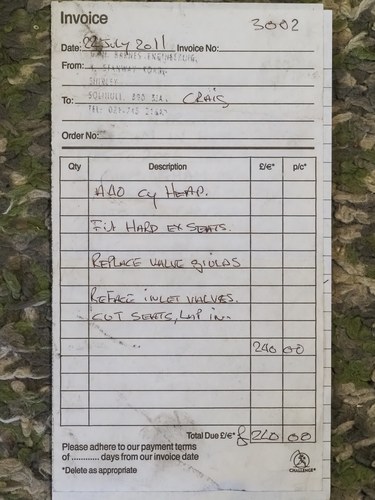 Invoice
3002
Date: 22 July 2011 Invoice No:
From: ENGINEERING,
SHIRLEY
SOLIHULL,
To: CRAIG
TEL:
Order No:
Qty Description £/€* p/c*
A40 Cy HEAD.
Fit HARD EX SEATS.
REPLACE VALVE guides
REFACE INLET VALVES.
CUT SEATS, LAP in.
240 00
Total Due £/€* £ 240 00
Please adhere to our payment terms
of ............ days from our invoice date
*Delete as appropriate
CHALLENGE